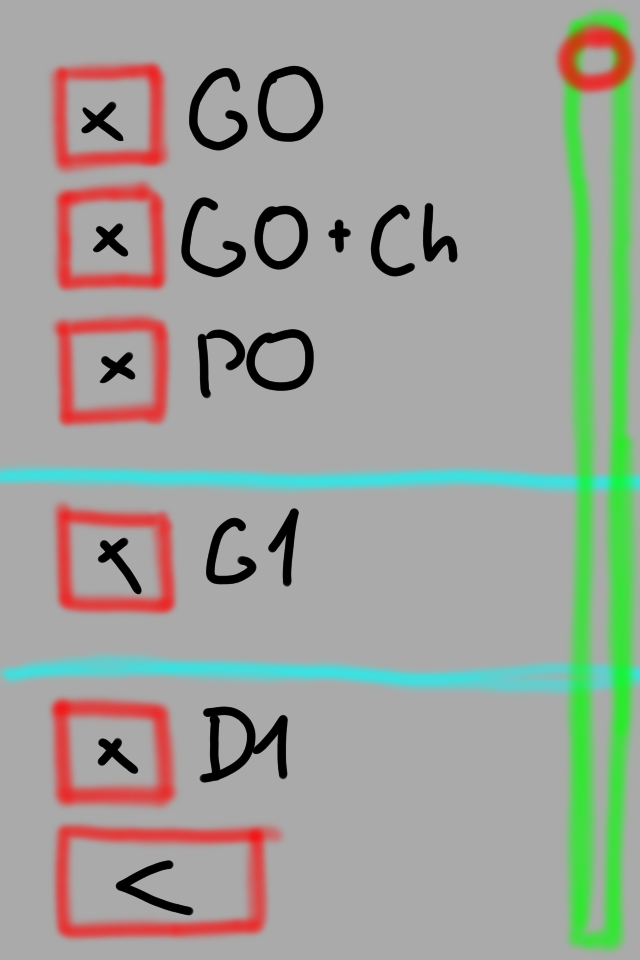 x GO
x GO + Ch
x PO
x G1
x D1
<